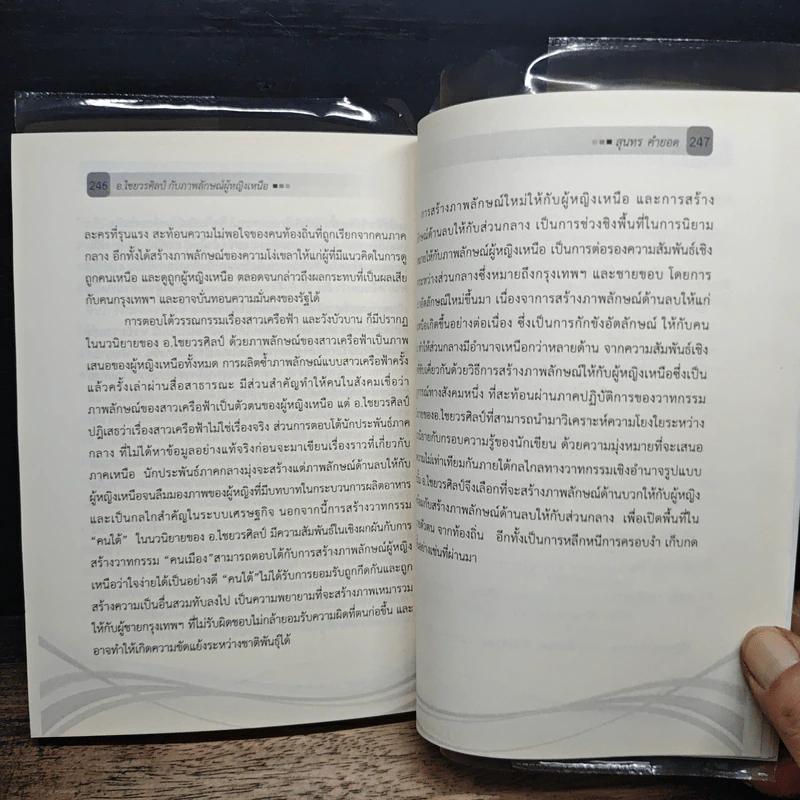 246 อ.ไชยวรศิลป์ กับภาพลักษณ์ผู้หญิงเหนือ
ละครที่รุนแรง สะท้อนความไม่พอใจของคนท้องถิ่นที่ถูกเรียกจากคนภาค
กลาง อีกทั้งได้สร้างภาพลักษณ์ของความโง่เขลาให้แก่ผู้ที่มีแนวคิดในการดู
ถูกคนเหนือ และดูถูกผู้หญิงเหนือ ตลอดจนกล่าวถึงผลกระทบที่เป็นผลเสีย
กับคนกรุงเทพฯ และอาจบั่นทอนความมั่นคงของรัฐได้
การตอบโต้วรรณกรรมเรื่องสาวเครือฟ้า และวังบัวบาน ก็มีปรากฏ
ในนวนิยายของ อ.ไชยวรศิลป์ ด้วยภาพลักษณ์ของสาวเครือฟ้าเป็นภาพ
เสนอของผู้หญิงเหนือทั้งหมด การผลิตซ้ำภาพลักษณ์แบบสาวเครือฟ้าครั้ง
แล้วครั้งเล่าผ่านสื่อสาธารณะ มีส่วนสำคัญทำให้คนในสังคมเชื่อว่า
ภาพลักษณ์ของสาวเครือฟ้าเป็นตัวตนของผู้หญิงเหนือ แต่ อ.ไชยวรศิลป์
ปฎิเสธว่าเรื่องสาวเครือฟ้าไม่ใช่เรื่องจริง ส่วนการตอบโต้นักประพันธ์ภาค
กลาง ที่ไม่ได้หาข้อมูลอย่างแท้จริงก่อนจะมาเขียนเรื่องราวที่เกี่ยวกับ
ภาคเหนือ นักประพันธ์ภาคกลางมุ่งจะสร้างแต่ภาพลักษณ์ด้านลบให้กับ
ผู้หญิงเหนือจนลืมมองภาพของผู้หญิงที่มีบทบาทในกระบวนการผลิตอาหาร
และเป็นกลไกสำคัญในระบบเศรษฐกิจ นอกจากนี้การสร้างวาทกรรม
“คนใต้” ในนวนิยายของ อ.ไชยวรศิลป์ มีความสัมพันธ์ในเชิงผกผันกับการ
สร้างวาทกรรม “คนเมือง”สามารถตอบโต้กับการสร้างภาพลักษณ์ผู้หญิง
เหนือว่าใจง่ายได้เป็นอย่างดี “คนใต้”ไม่ได้รับการยอมรับถูกกีดกันและถูก
สร้างความเป็นอื่นสวมทับลงไป เป็นความพยายามที่จะสร้างภาพเหมารวม
ให้กับผู้ชายกรุงเทพฯ ที่ไม่รับผิดชอบไม่กล้ายอมรับความผิดที่ตนก่อขึ้น และ
อาจทำให้เกิดความขัดแย้งระหว่างชาติพันธุ์ได้
สุนทร คำยอด 247
การสร้างภาพลักษณ์ใหม่ให้กับผู้หญิงเหนือ และการสร้าง
ลักษณ์ด้านลบให้กับส่วนกลาง เป็นการช่วงชิงพื้นที่ในการนิยาม
ให้กับภาพลักษณ์ผู้หญิงเหนือ เป็นการต่อรองความสัมพันธ์เชิง
ระหว่างส่วนกลางซึ่งหมายถึงกรุงเทพฯ และชายขอบ โดยการ
อัตลักษณ์ใหม่ขึ้นมา เนื่องจาการสร้างภาพลักษณ์ด้านลบให้แก่
เหนือเกิดขึ้นอย่างต่อเนื่อง ซึ่งเป็นการกักขังอัตลักษณ์ ให้กับคน
ทำให้ส่วนกลางมีอำนาจเหนือกว่าหลายด้าน จากความสัมพันธ์เชิง
เดียวกันด้วยวิธีการสร้างภาพลักษณ์ให้กับผู้หญิงเหนือซึ่งเป็น
ทางสังคมหนึ่ง ที่สะท้อนผ่านภาคปฏิบัติการของวาทกรรม
ของอ.ไชยวรศิลป์ที่สามารถนำมาวิเคราะห์ความโยงใยระหว่าง
กับกรอบความรู้ของนักเขียน ด้วยความมุ่งหมายที่จะเสนอ
ความไม่เท่าเทียมกันภายใต้กลไกลทางวาทกรรมเชิงอำนาจรูปแบบ
อ.ไชยวรศิลป์จึงเลือกที่จะสร้างภาพลักษณ์ด้านบวกให้กับผู้หญิง
กับสร้างภาพลักษณ์ด้านลบให้กับส่วนกลาง เพื่อเปิดพื้นที่ใน
ตัวตน จากท้องถิ่น อีกทั้งเป็นการหลีกหนีการครอบงำ เก็บกด
อย่างเช่นที่ผ่านมา